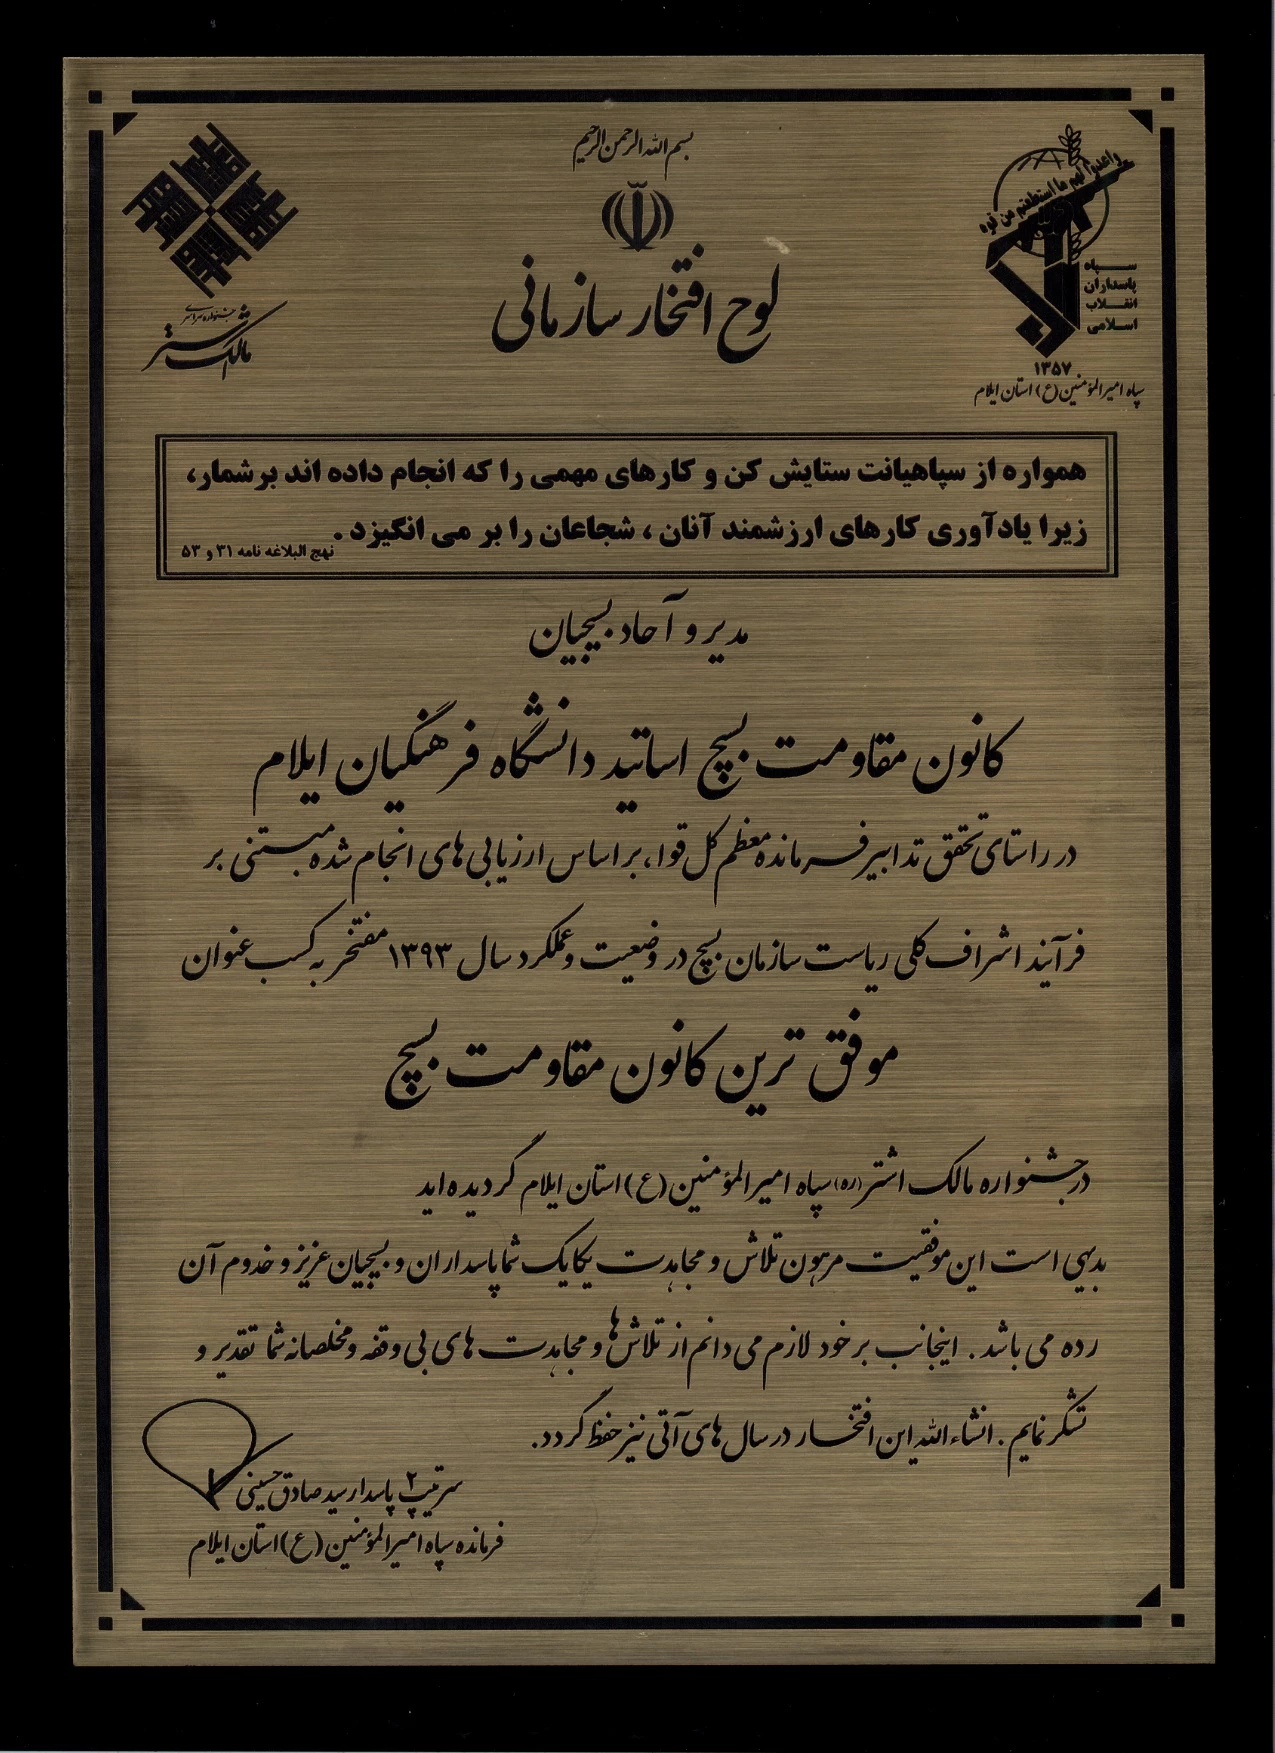 بسم الله الرحمن الرحیم
واعدوا لهم ما استطعتم من قوة
سپاه
پاسداران
انقلاب
اسلامی
۱۳۵۷
سپاه امیرالمؤمنین (ع) استان ایلام
جشنواره سراسری
مالک اشتر
لوح افتخار سازمانی
همواره از سپاهیانت ستایش کن و کارهای مهمی را که انجام داده اند برشمار،
زیرا یادآوری کارهای ارزشمند آنان ، شجاعان را بر می انگیزد . نهج البلاغه نامه ۳۱ و ۵۳
مدیر و آحاد بسیجیان
کانون مقاومت بسیج اساتید دانشگاه فرهنگیان ایلام
در راستای تحقق تدابیر فرمانده معظم کل قوا، بر اساس ارزیابی های انجام شده مبتنی بر
فرآیند اشراف کلی ریاست سازمان بسیج در وضعیت و عملکرد سال ۱۳۹۳ مفتخر به کسب عنوان
موفق ترین کانون مقاومت بسیج
در جشنواره مالک اشتر (ره) سپاه امیرالمؤمنین (ع) استان ایلام گردیده اید
بدیهی است این موفقیت مرهون تلاش و مجاهدت یکایک شما پاسداران و بسیجیان عزیز و خدوم آن
رده می باشد . اینجانب بر خود لازم می دانم از تلاش ها و مجاهدت های بی وقفه و مخلصانه شما تقدیر و
تشکر نمایم . انشاءالله این افتخار در سال های آتی نیز حفظ گردد.
سرتیپ ۲ پاسدار سید صادق حسینی
فرمانده سپاه امیرالمؤمنین (ع) استان ایلام